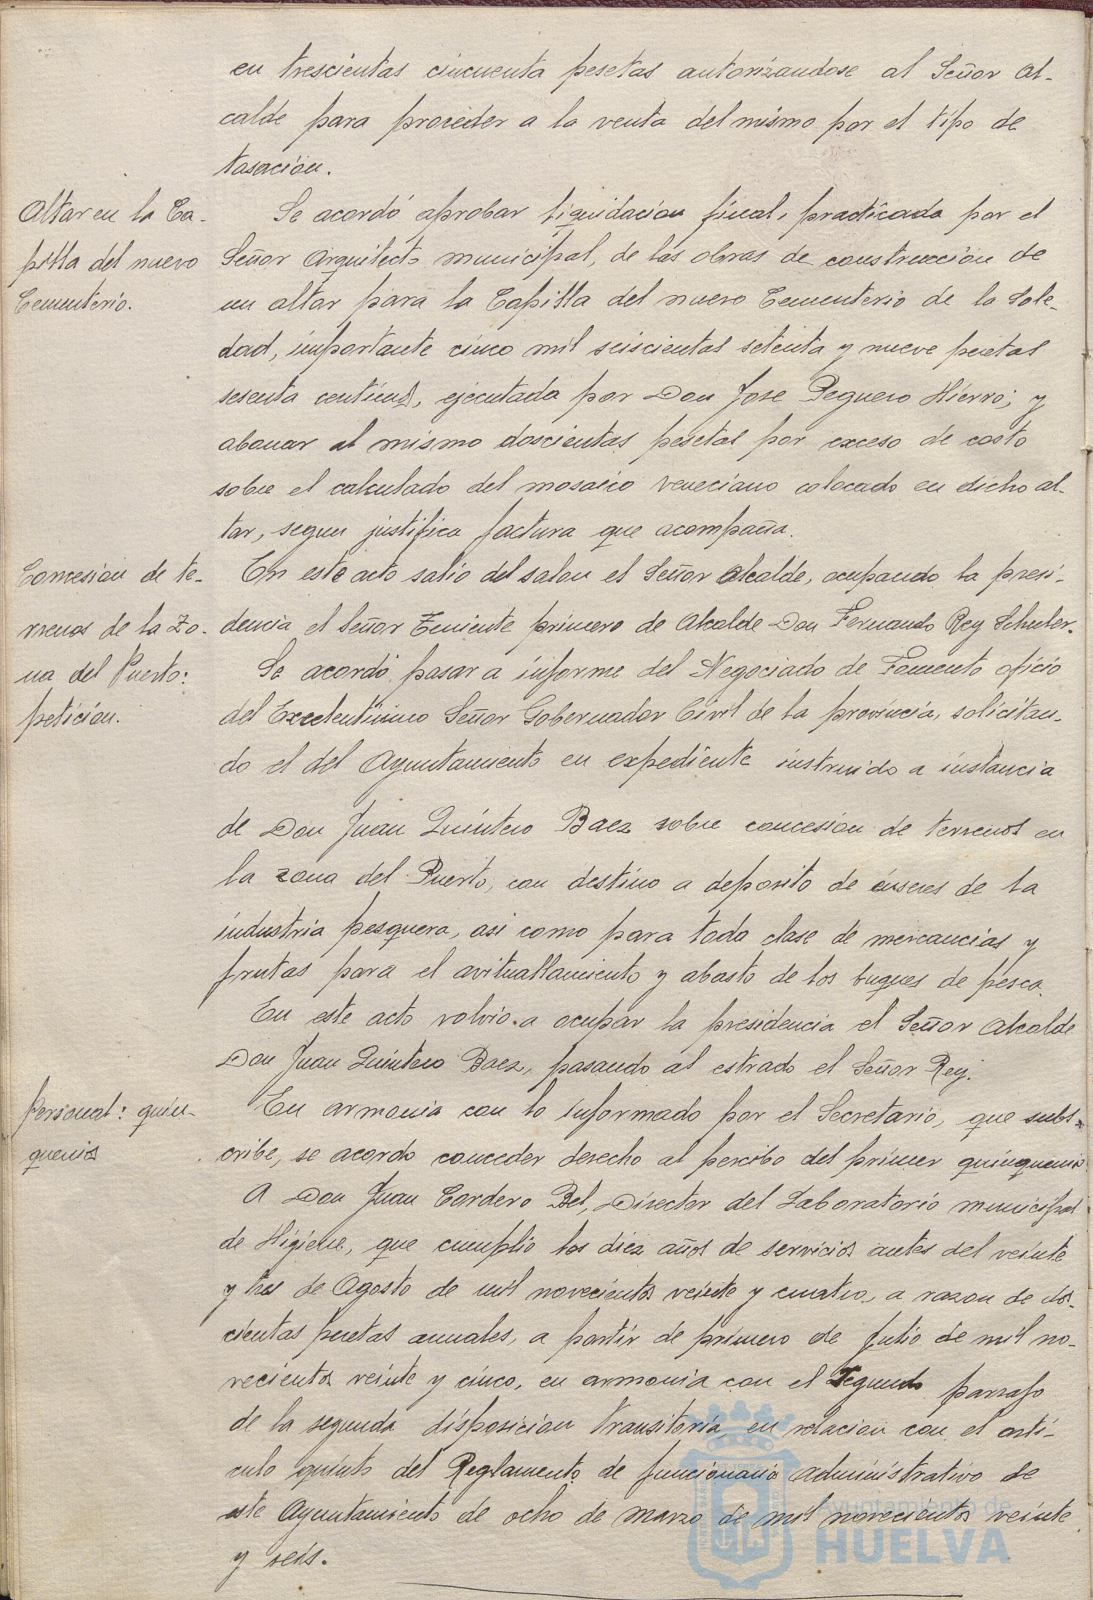 en trescientas cincuenta pesetas autorizandose al Señor Al-
calde para proceder a la venta del mismo por el tipo de
tasación.
Altar en la Ca-
pilla del nuevo
Cementerio.
Se acordó aprobar liquidacion final, practicada por el
Señor Arquitecto municipal, de las obras de construcción de
un altar para la Capilla del nuevo Cementerio de la Sole-
dad, importante cinco mil seiscientas setenta y nueve pesetas
sesenta centimos, ejecutada por Don Jose Peguero Hierro; y
abonar al mismo doscientas pesetas por exceso de costo
sobre el calculado del mosaico veneciano colocado en dicho al-
tar, segun justifica factura que acompaña.
Concesion de te-
rrenos de la Zo-
na del Puerto:
peticion.
En este acto salio del salon el Señor Alcalde, ocupando la presi-
dencia el Señor Teniente primero de Alcalde Don Fernando Rey
Se acordó pasar a informe del Negociado de Fomento oficio
del Excelentisimo Señor Gobernador Civil de la provincia, solicitan-
do el del Ayuntamiento en expediente instruido a instancia
de Don Juan Quintero Baez sobre concesion de terrenos en
la zona del Puerto, con destino a deposito de enseres de la
industria pesquera, asi como para toda clase de mercancias y
frutas para el avituallamiento y abasto de los buques de pesca.
En este acto volvio a ocupar la presidencia el Señor Alcalde
Don Juan Quintero Baez, pasando al estrado el Señor Rey.
Personal: quin-
quenios
En armonia con lo informado por el Secretario, que subs-
cribe, se acordo conceder derecho al percibo del primer quinquenio
A Don Juan Cordero Bel, Director del Laboratorio municipal
de Higiene, que cumplio los diez años de servicios antes del veinte
y tres de Agosto de mil novecientos veinte y cuatro, a razon de dos-
cientas pesetas anuales, a partir de primero de Julio de mil no-
vecientos veinte y cinco, en armonia con el segundo parrafo
de la segunda disposicion transitoria en relacion con el arti-
culo quinto del Reglamento de funcionario administrativo de
este Ayuntamiento de ocho de marzo de mil novecientos veinte
y seis.
Ayuntamiento de
HUELVA